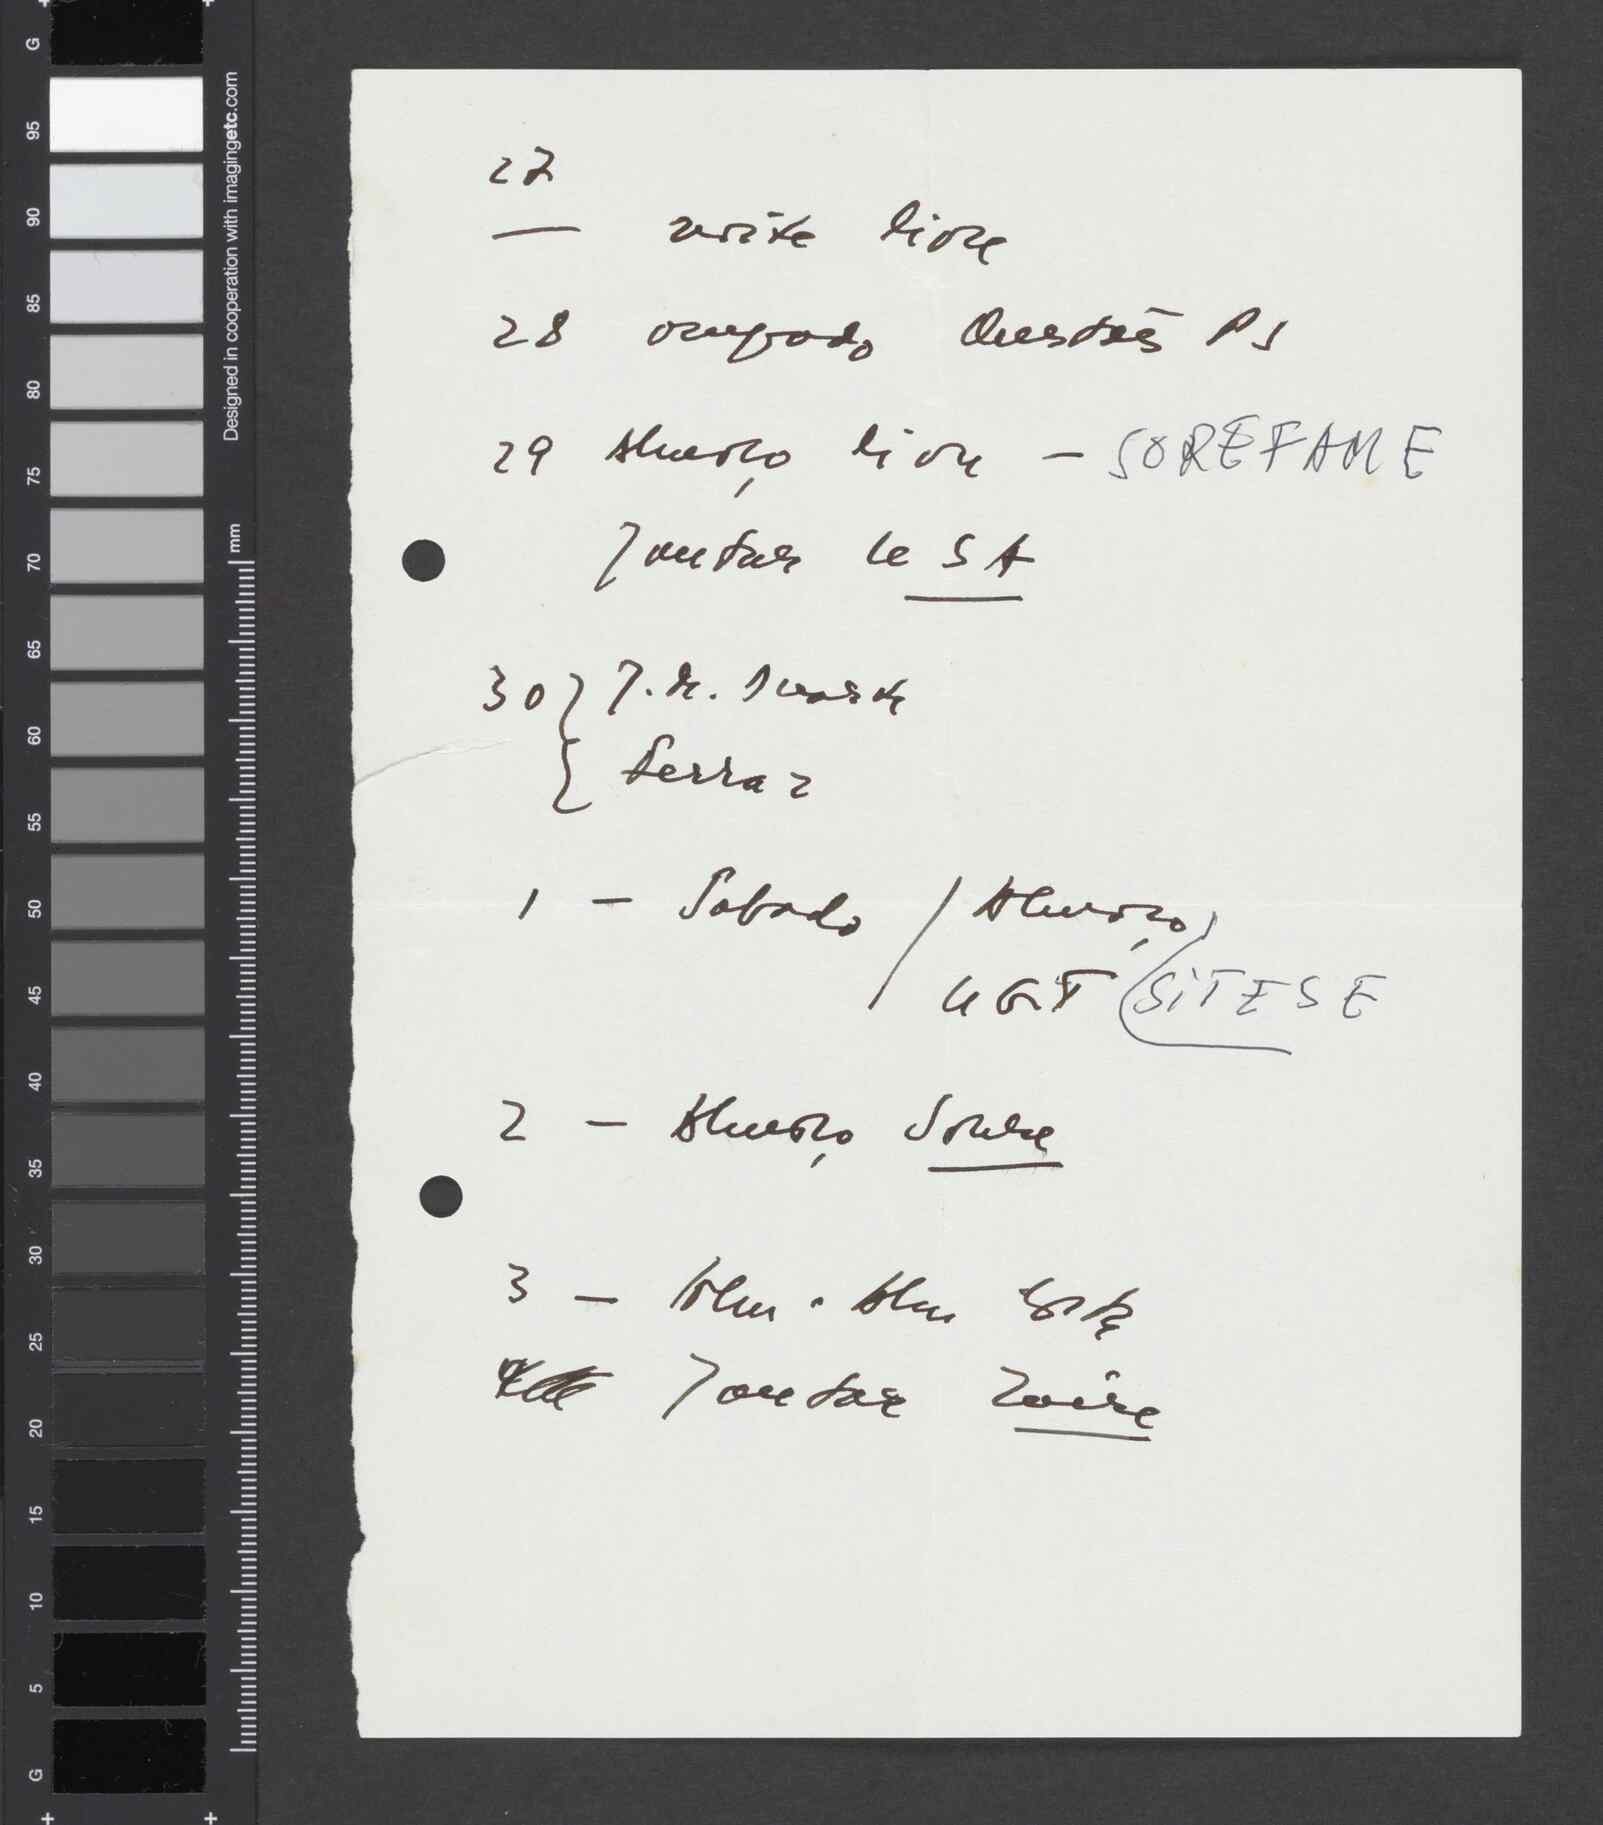 27
— noite livre
28 ocupado Questões PS
29 Almoço livre — SOREFAME
Jantar de SA
30 J. M. Duarte
Ferraz
1 — Sabado / Almoço
UGT (SITESE
2 — Almoço Soure
3 — Alm
Jantar Zaire
G
95
90
85
80
75
70
65
60
55
50
45
40
35
30
25
20
15
10
5
G
mm
Designed in cooperation with imagingetc.com